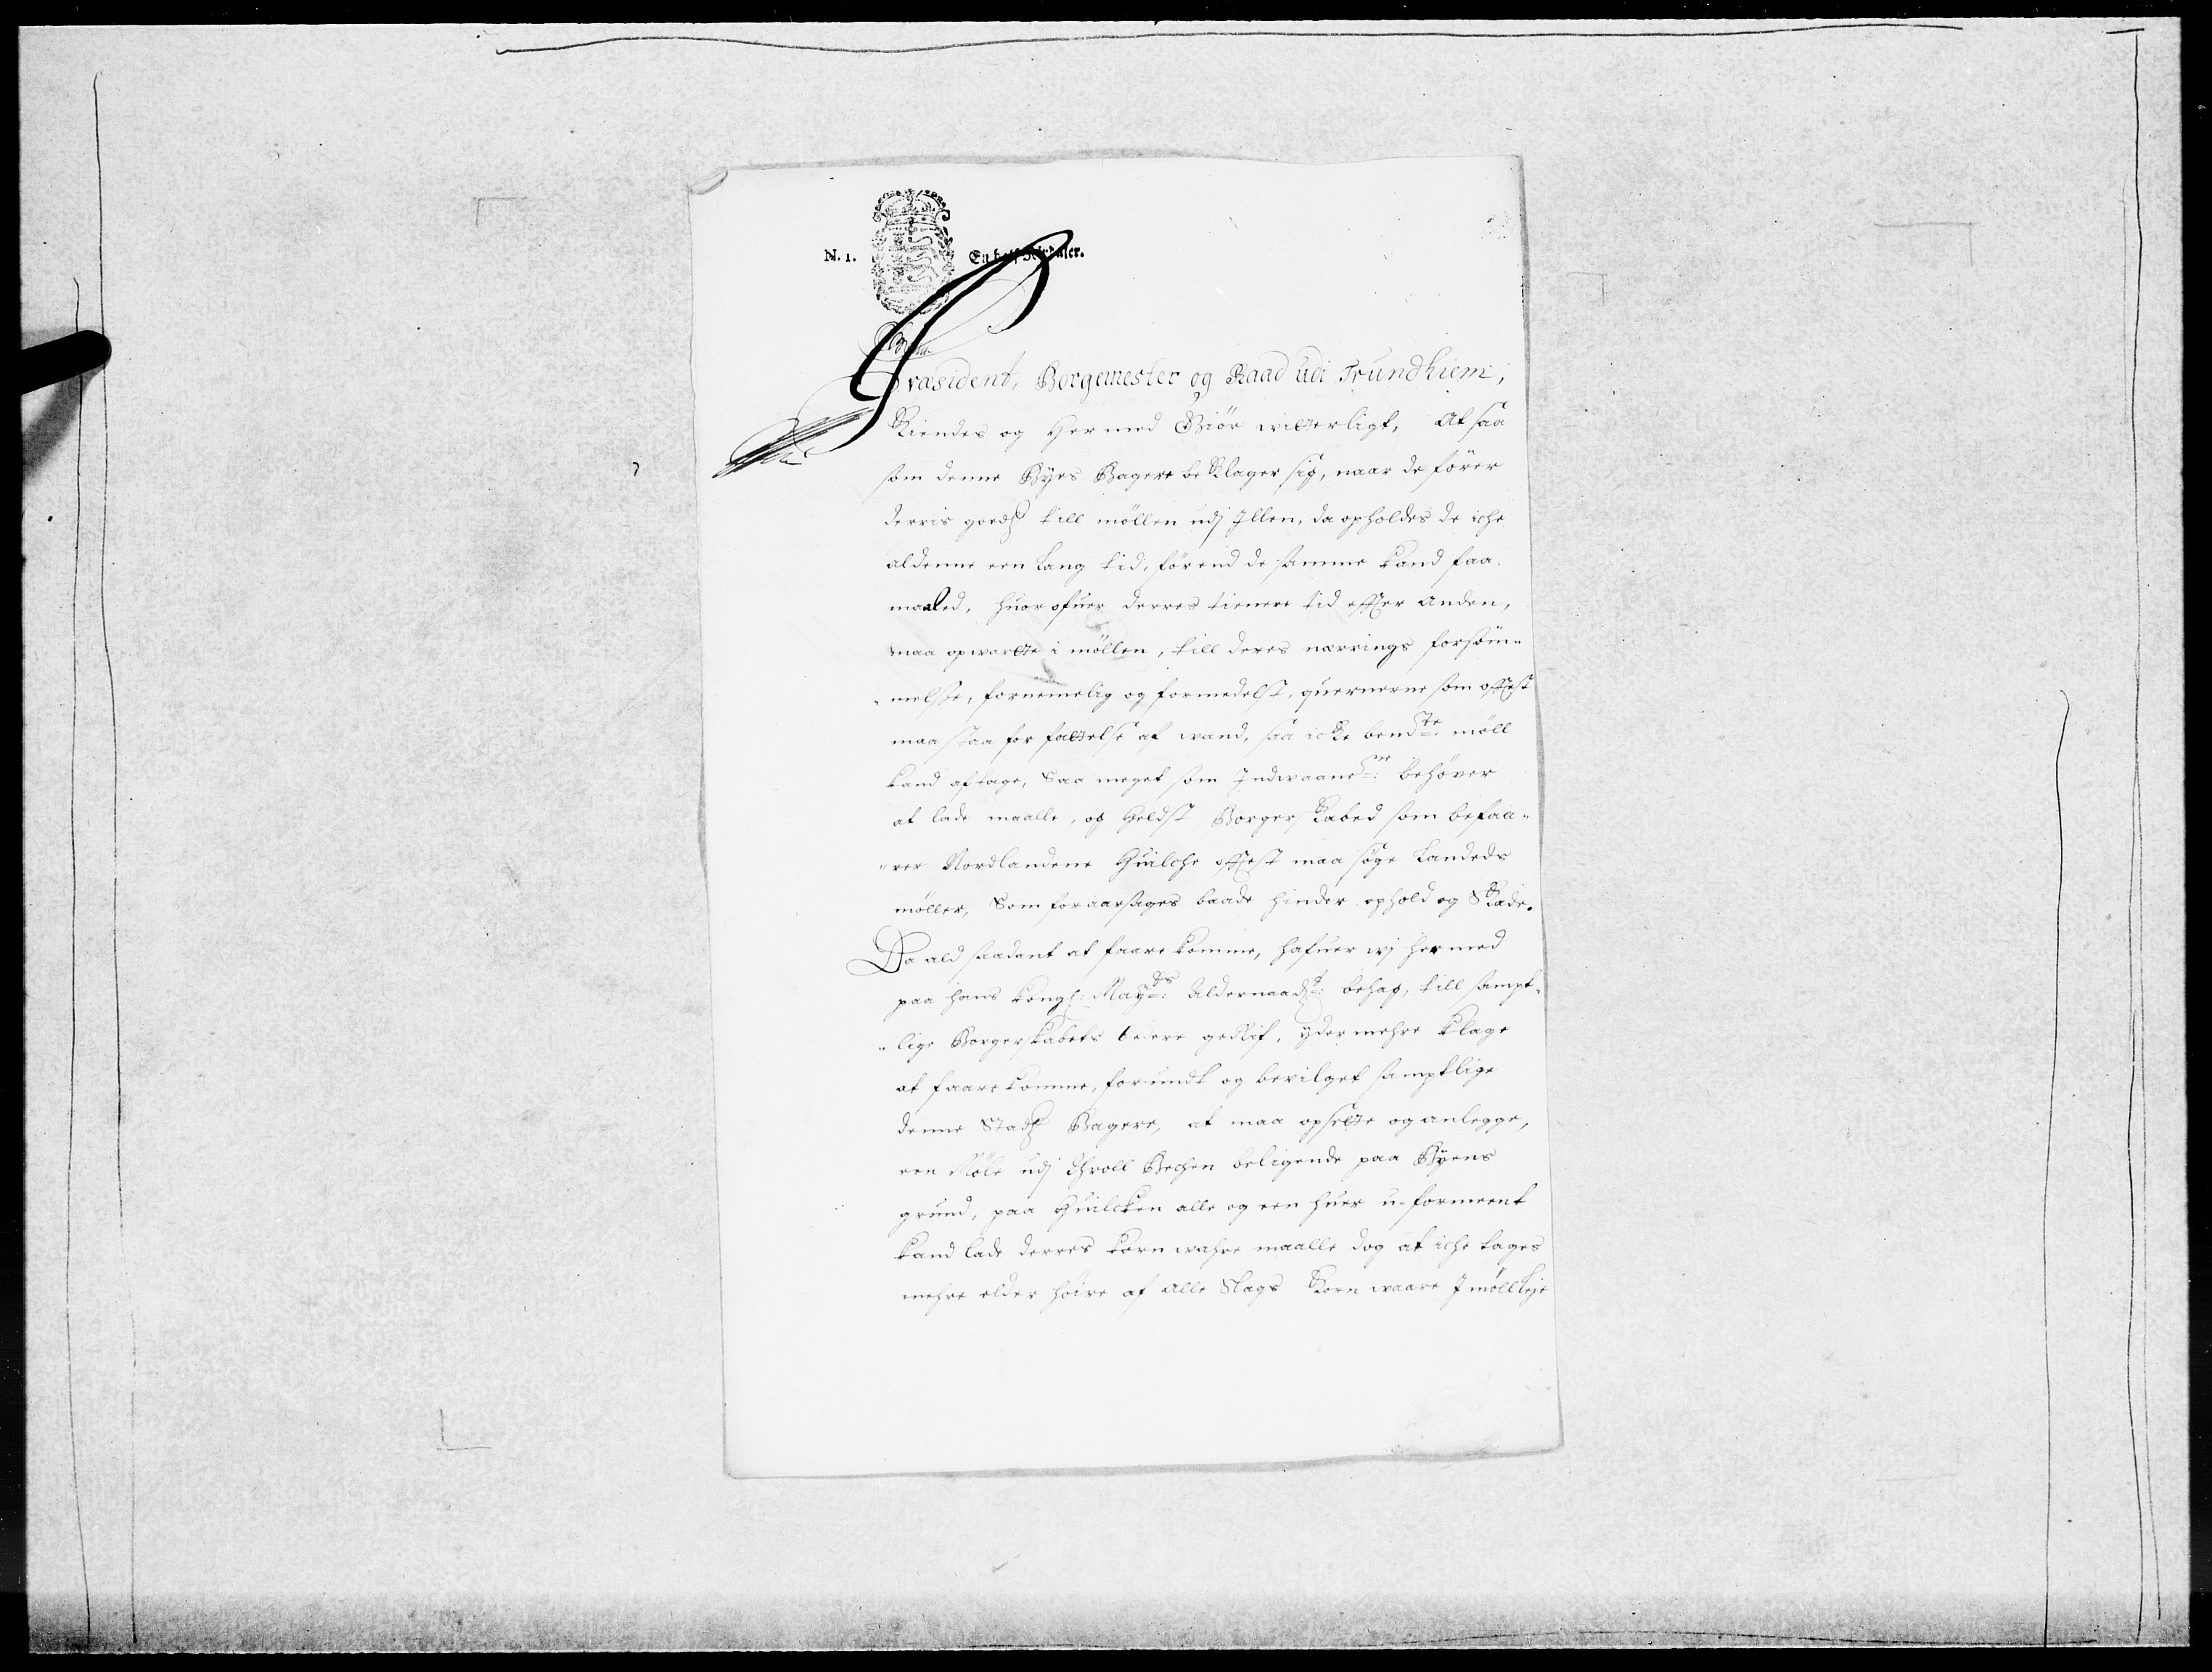 N. 1. En halff Rixdaler.
Præsident, Borgemester og Raad udi Trundhiem,
Kiendes og Hermed Giör witterligt, At saa
som denne Byes Bagere beKlager sig, naar de förer
derris goedß till möllen udj Jllen, da opholdes de iche
aldenne een lang tid, förend de samme kand faa
maaled, huor ofuer derres tienere tid effter anden,
maa opwartte i möllen, till deres nærrings forsöm-
-melsse, fornemelig og formedelst, quernerne som offtest
maa staa for fattelse af wand, saa icke bendte: möll
kand aftage, Saa meget som Indwaanerne: behöver
at lade maalle, og Heldst BorgerSkabed som befaa-
-rer Nordlandene Huilche offtest maa söge Landeds
möller, Som foraarsages baade hinder ophold og Skade.
Da ald saadant at faare komme, hafuer wj hermed
paa hans kongl: Mayts: Aldernaadgst: behag, till sampt-
-lige Borgerskabets bedere gedKif, ydermehre klage
at faare komme, forundt og bevilget samptlige
denne Stadß Bagere, at maa opsette og anlegge,
een Möle udj Throll Bechen beligende paa Byens
grund, paa Huilcken alle og een huer u-formeent
kand lade derres kornwahre maalle dog at iche tages
mehre elder höire af alle Slags Korn waare J mölleleje